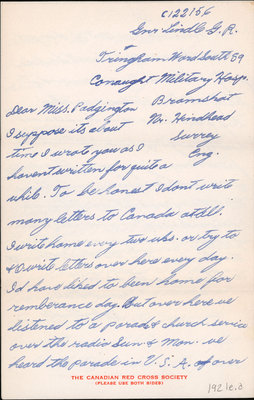 C122156
Gnr Lindl G. R.
Ward South 59
Conaught Military Hosp.
Dear Miss. Padgington Bramshot
I suppose its about Nr. Hindhead
time I wrote you as I Surrey
havent written for quite a Eng.
while. To be honest I dont write
many letters to Canada atall.
I write home every two wks. or try to
& write letters over here every day.
I'd have liked to been home for
remberance day. But over here we
listened to a parade & church service
over the radio Sun & Mon. we
heard the parade in U.S.A. over
THE CANADIAN RED CROSS SOCIETY
(PLEASE USE BOTH SIDES)
192